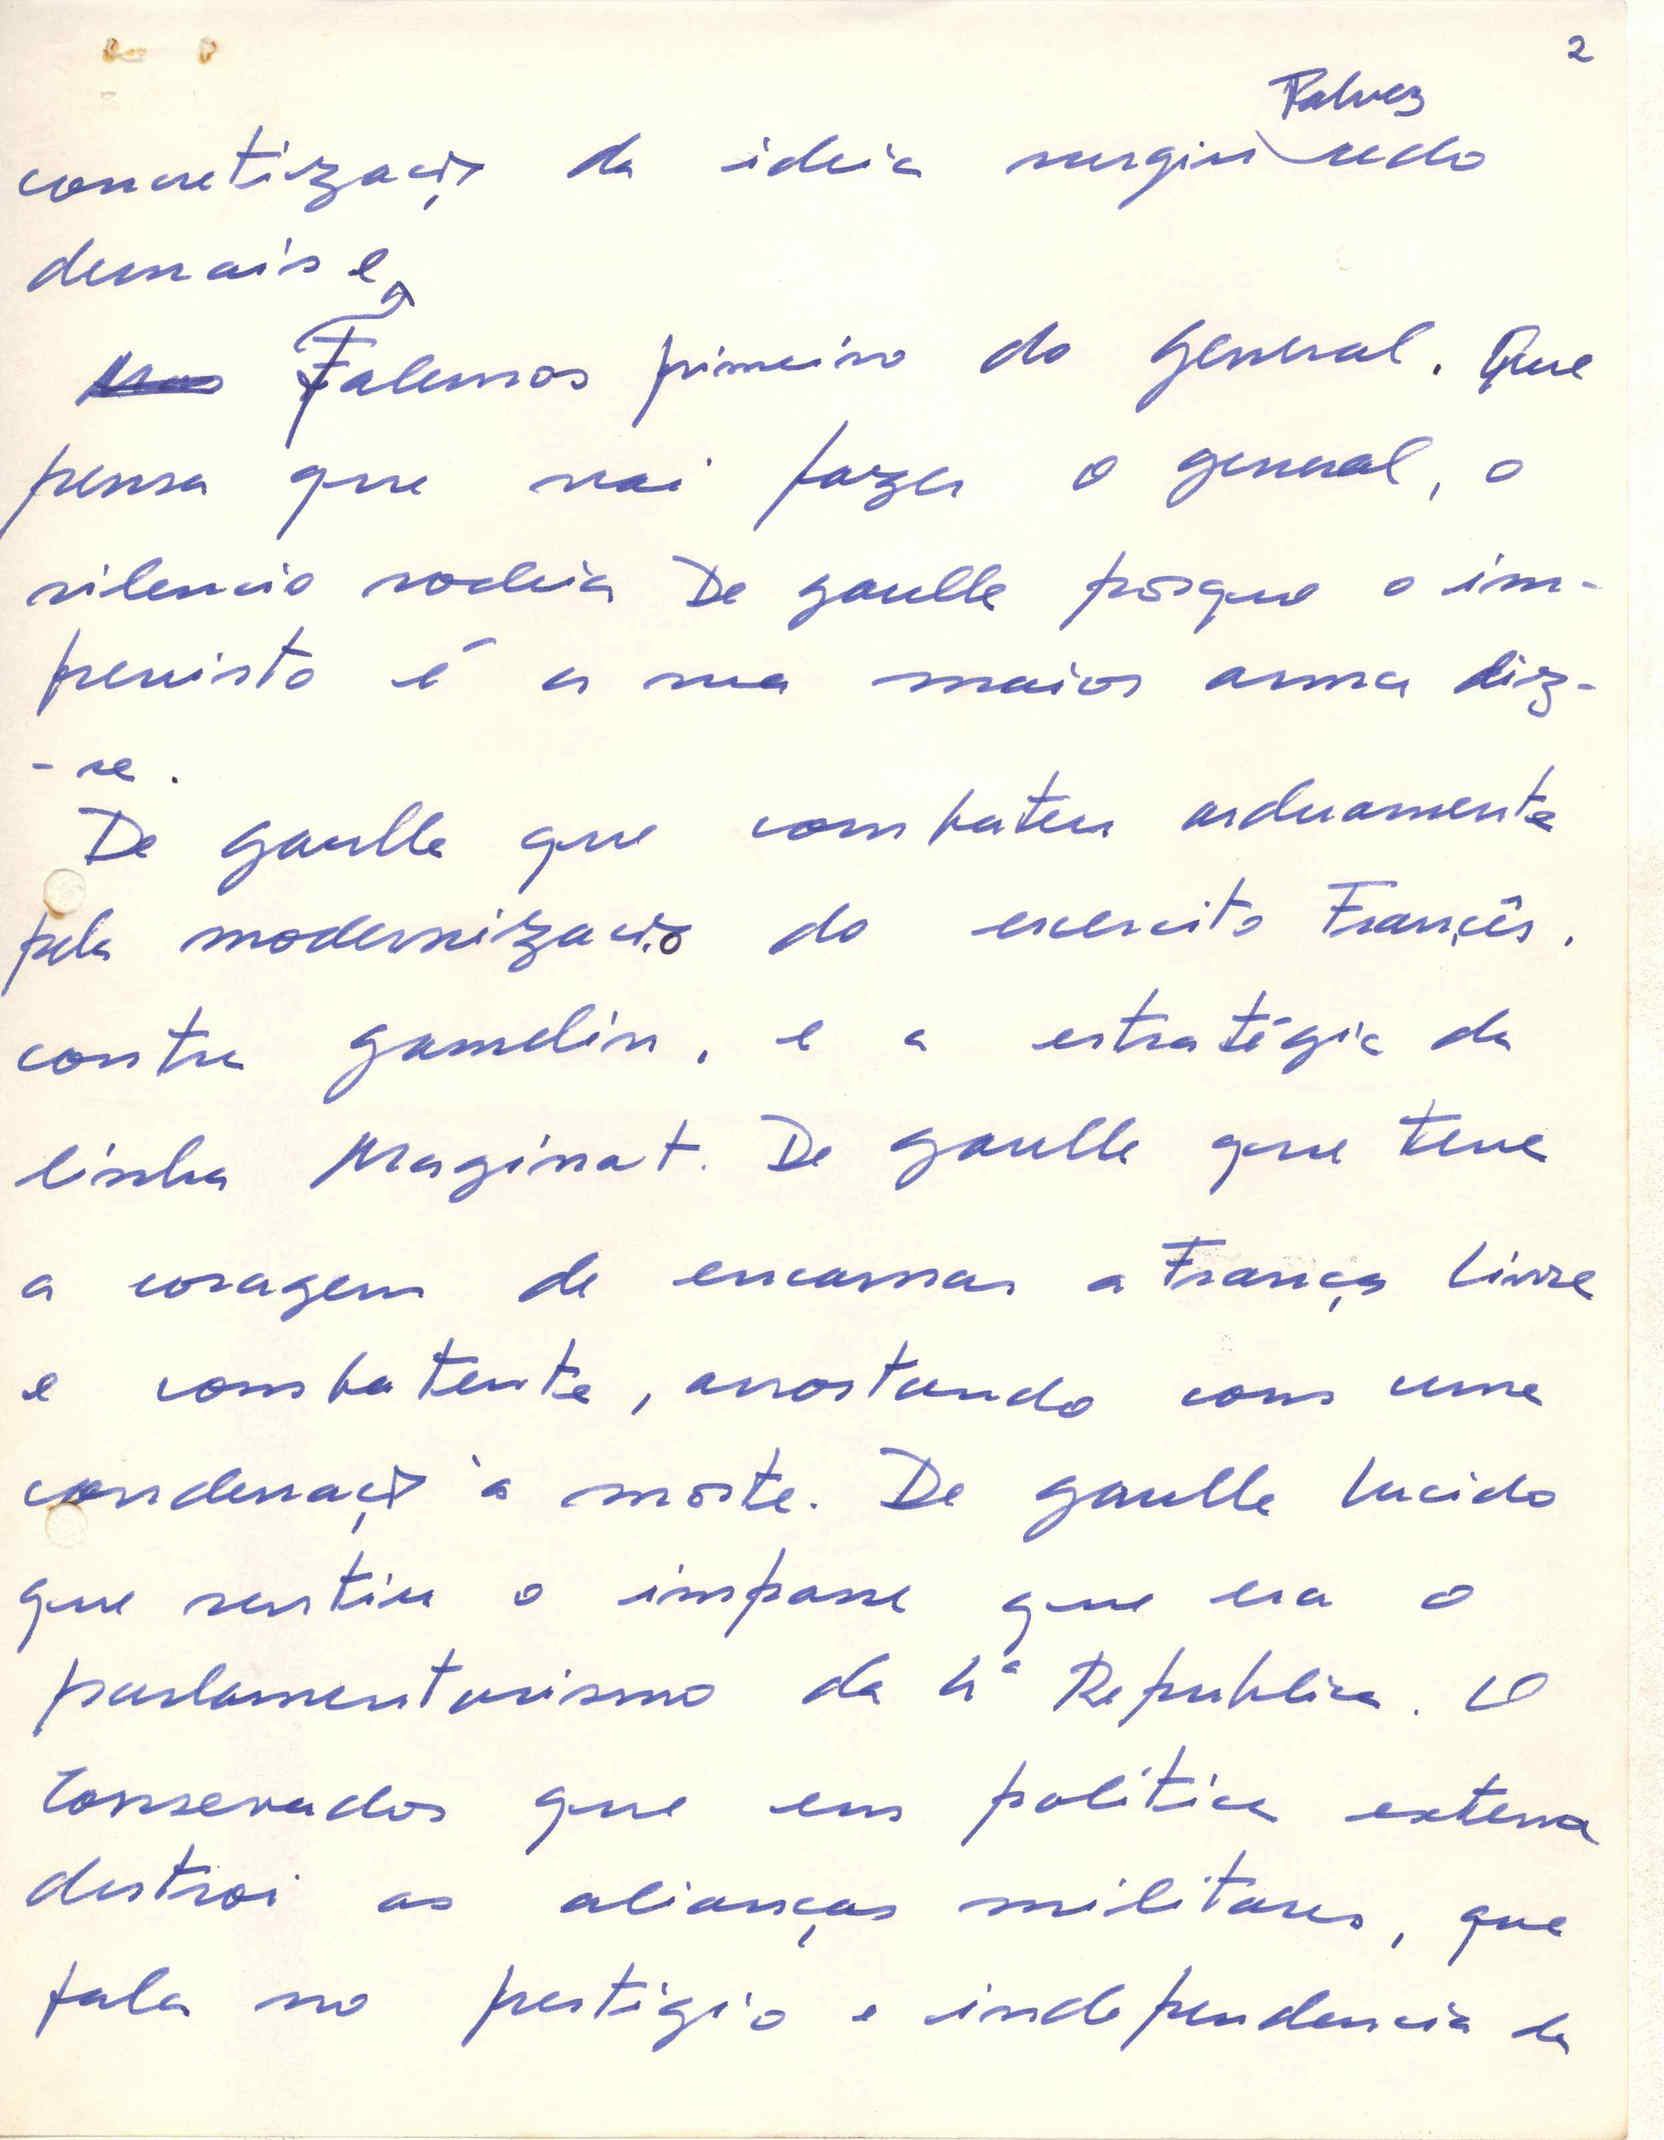 2
Talvez
concretização da ideia surgiu cedo
demais e
Mas Falemos primeiro do general. Que
pensa que vai fazer o general, o
silencio rodeia De Gaulle porque o im-
previsto é a sua maior arma diz-
-se.
De Gaulle que combateu arduamente
pela modernização do exercito Françês.
contra Gamelin, e a estratégia da
linha Maginot. De Gaulle que teve
a coragem de encarnar a França Livre
e combatente, arrostando com uma
condenação à morte. De Gaulle lucido
que sentiu o impasse que era o
parlamentarismo da 4ª Republica. O
Conservador que em política externa
destroi as alianças militares, que
fala no prestigio e independencia da